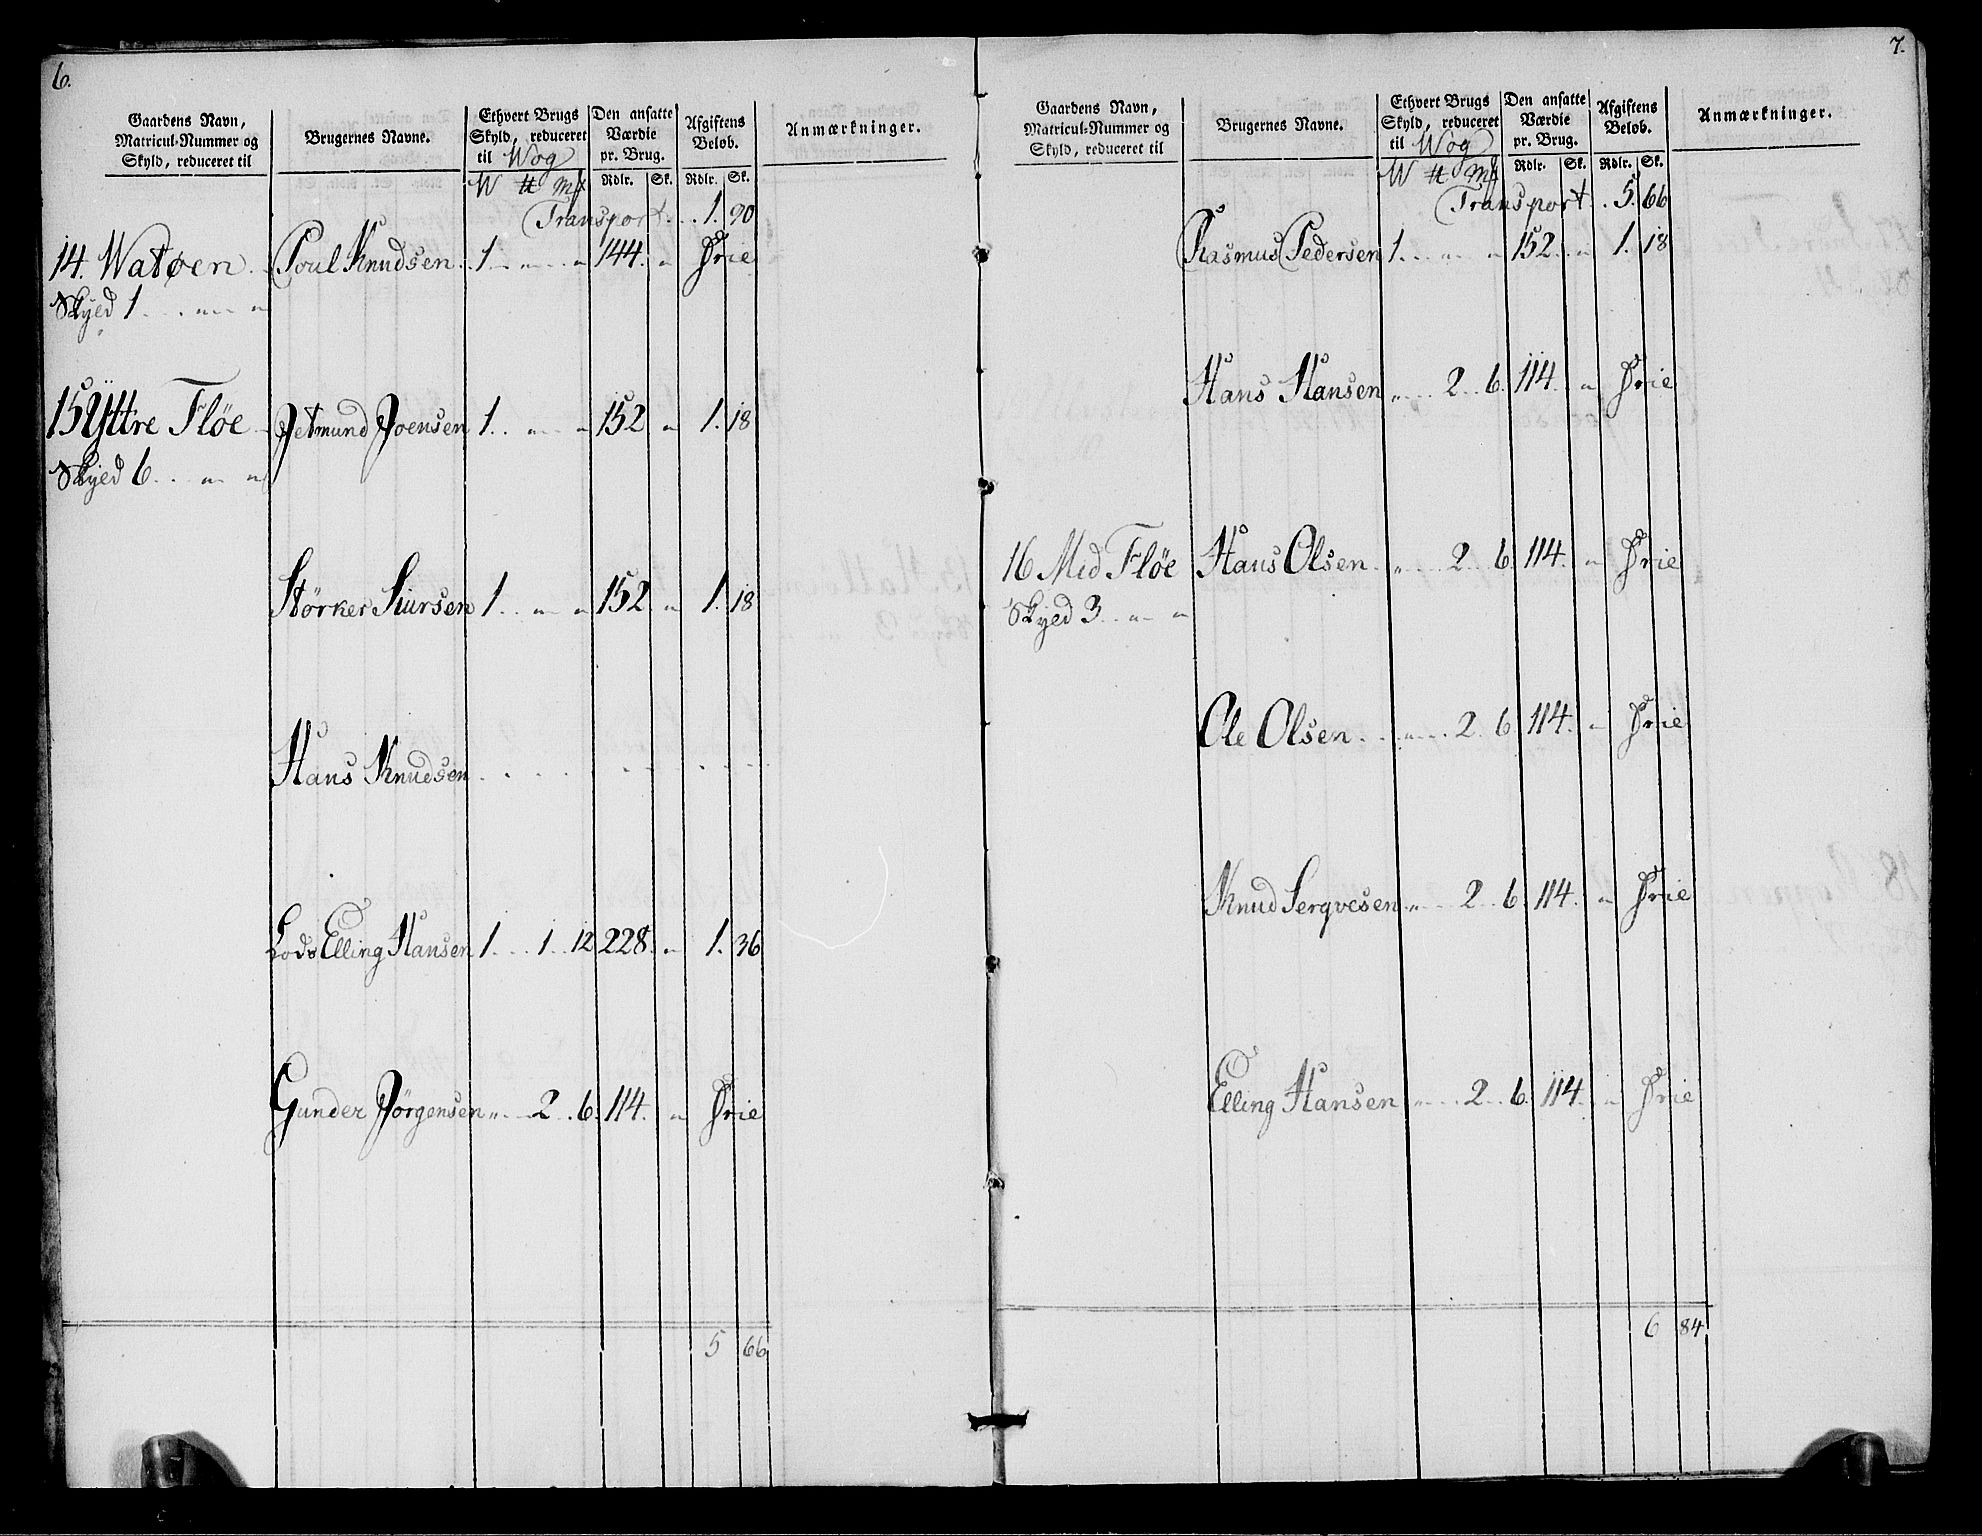 6.
Gaardens Navn,
Matricul-Nummer og
Skyld, reduceret til
Brugernes Navne.
Ethvert Brugs
Skyld, reduceret
til Wog
W ℔ Mk
Den ansatte
Værdie
pr. Brug.
Rdlr. Sk.
Afgiftens
Beløb.
Rdlr. Sk.
Anmærkninger.
Transport . . 1. 90
14. Watøen Poul Knudsen 1 . „ „ 144. „ Frie
Skyed 1 . . . „ „
15 Yttre Fløe Jetmund Joensen 1 . . „ „ 152 „ 1. 18
Skyed 6 . . „ „
Störker Siursen 1 . . „ „ 152 „ 1. 18
Hans Knudsen . . . . . . . . .
Lods Elling Hansen 1 . . 1 . . 12 228. „ 1. 36
Gunder Jörgensen „ . . 2 . . 6. 114. „ Frie
5 66
7.
Gaardens Navn,
Matricul-Nummer og
Skyld, reduceret til
Brugernes Navne.
Ethvert Brugs
Skyld, reduceret
til Wog
W ℔ Mk
Den ansatte
Værdie
pr. Brug.
Rdlr. Sk.
Afgiftens
Beløb.
Rdlr. Sk.
Anmærkninger.
Transport . 5. 66
Rasmus Pedersen 1 . . „ „ 152. „ 1. 18
Hans Hansen „ . . 2 . . 6. 114. „ Frie
16 Med Fløe Hans Olsen . „ . . 2 . . 6. 114. „ Frie
Skyed 3 . . „ „
Ole Olsen . . „ . . 2 . . 6 114. „ Frie
Knud Serqvesen „ . . 2 . . 6. 114. „ Frie
Elling Hansen „ . . 2 . . 6. 114. „ Frie
6 84